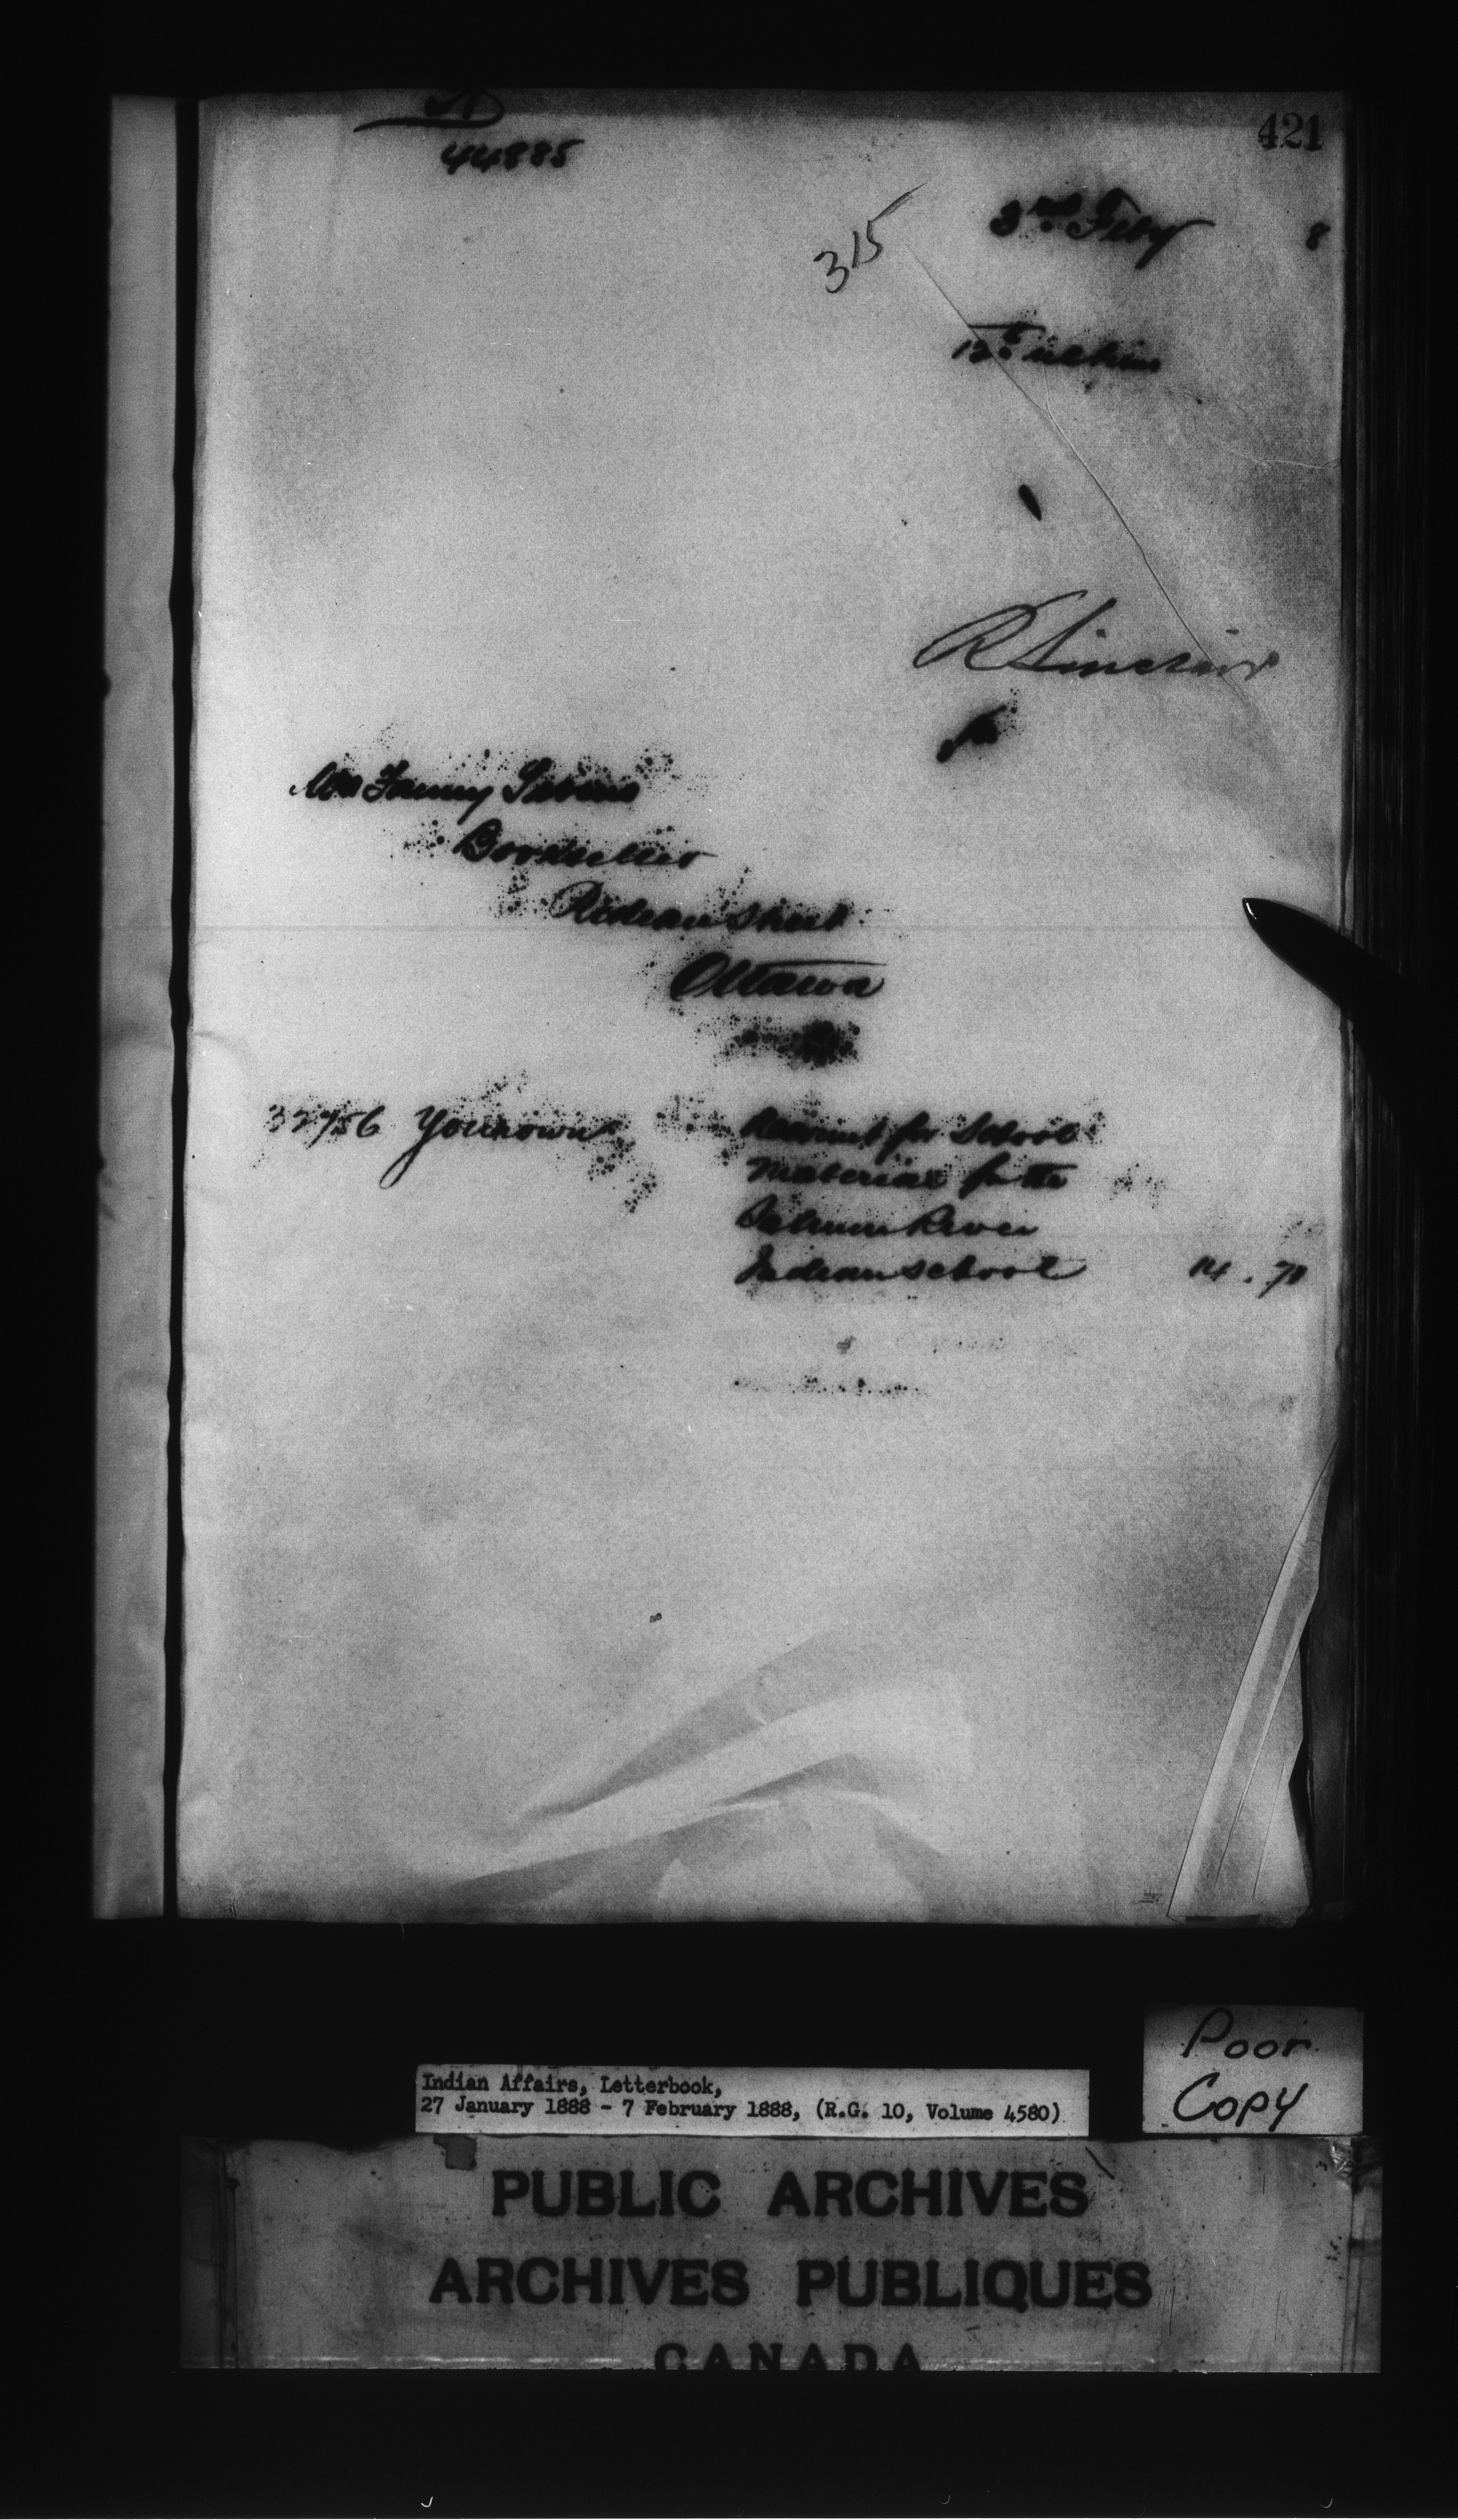 421
44885
315
3rd Feby 8
12th ultimo
R Sinclair
Fanny
Bookseller
Rideau Street
Ottawa
32756 Your own
Account for School
material for the
River
Indian School 14.70
Poor
Copy
Indian Affairs, Letterbook,
27 January 1888 - 7 February 1888, (R.G. 10, Volume 4580)
PUBLIC ARCHIVES
ARCHIVES PUBLIQUES
CANADA